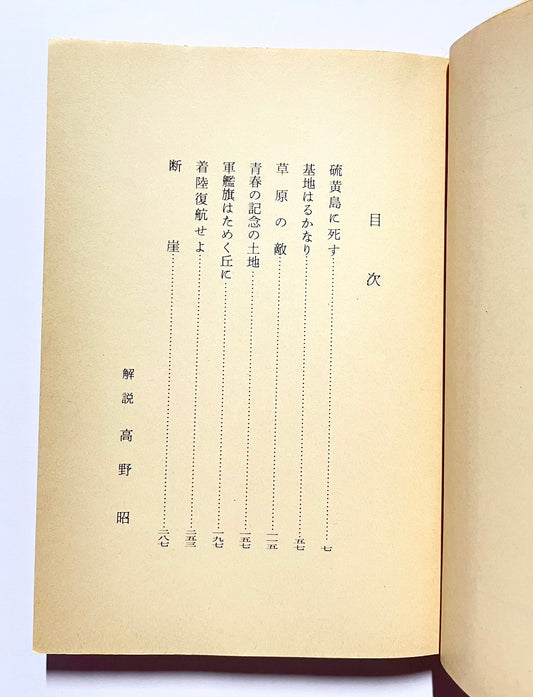 目次
硫黄島に死す……………七
基地はるかなり……………五七
草原の敵……………一一五
青春の記念の土地……………一五七
軍艦旗はためく丘に……………一九七
着陸復航せよ……………二五三
断崖……………二八七
解説 高野昭